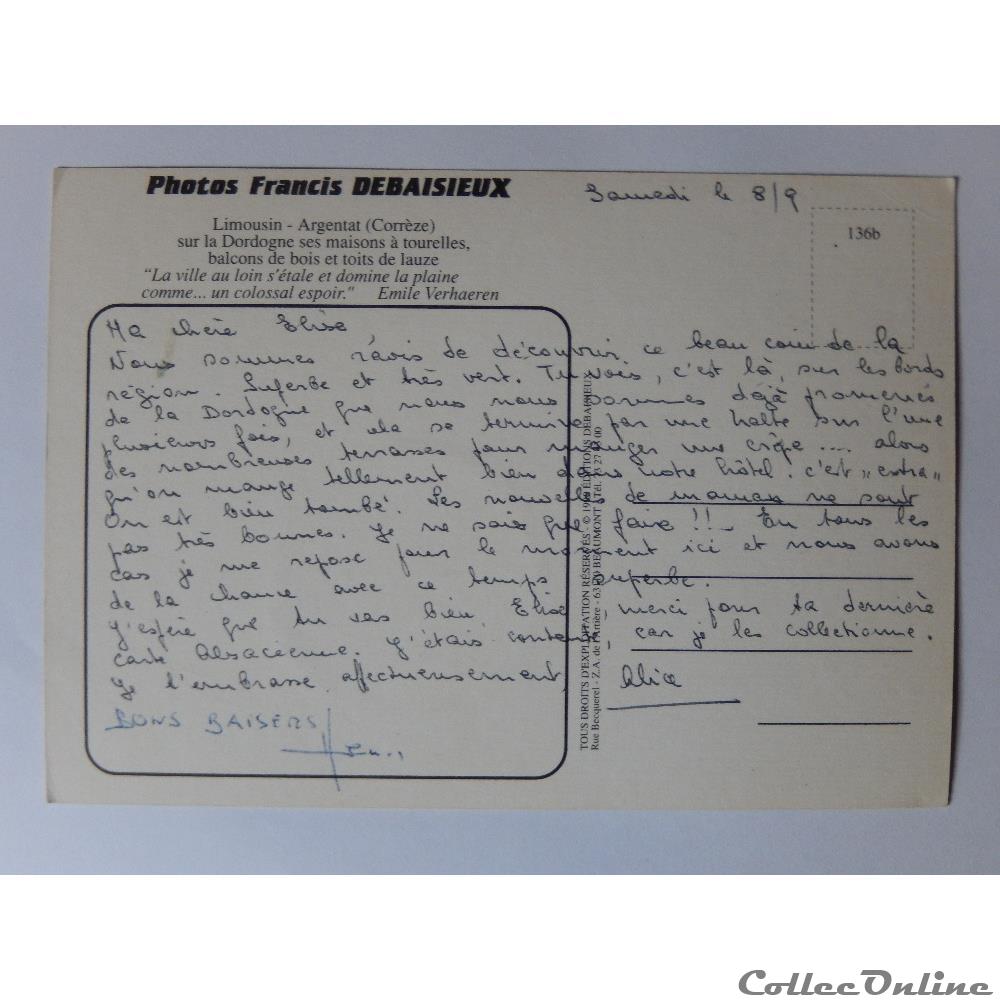 Photos Francis DEBAISIEUX
Samedi le 8/9
136b
Limousin - Argentat (Corrèze)
sur la Dordogne ses maisons à tourelles,
balcons de bois et toits de lauze
"La ville au loin s'étale et domine la plaine
comme... un colossal espoir." Emile Verhaeren
Ma chère Elise,
Nous sommes ravis de découvrir ce beau coin de la
région. Superbe et très vert. Tu vois, c'est là, sur les bords
de la Dordogne que nous nous sommes déjà promenés
plusieurs fois, et cela se termine par une halte sur l'une
des nombreuses terrasses pour manger une crêpe .... alors
qu'on mange tellement bien dans notre hôtel. c'est "extra"
On est bien tombé. Les nouvelles de maman ne sont
pas très bonnes. Je ne sais que faire !!_ En tous les
cas je me repose pour le moment ici et nous avons
de la chance avec ce temps superbe.
J'espère que tu vas bien Elise, merci pour ta dernière
carte Alsacienne. J'étais contente, car je les collectionne.
Je t'embrasse affectueusement, Alice
BONS BAISERS
TOUS DROITS D'EXPLOITATION RÉSERVÉS - © ÉDITIONS DEBAISIEUX
Rue Becquerel - Z.A. de - BEAUMONT - Tél.
CollecOnline